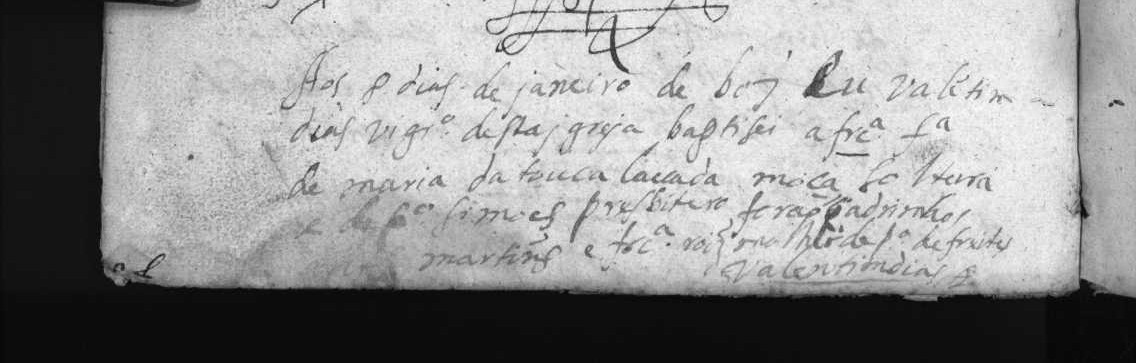 Aos 8 dias de janeiro de 607 Eu valētim
dias vigrº destaj greja baptisei a frcª fª
de maria da touca lacada moça solteira
e de pº simoes presbitero forão padrinhos
martins e frcª roiz molher de pº de freites
Valentim dias